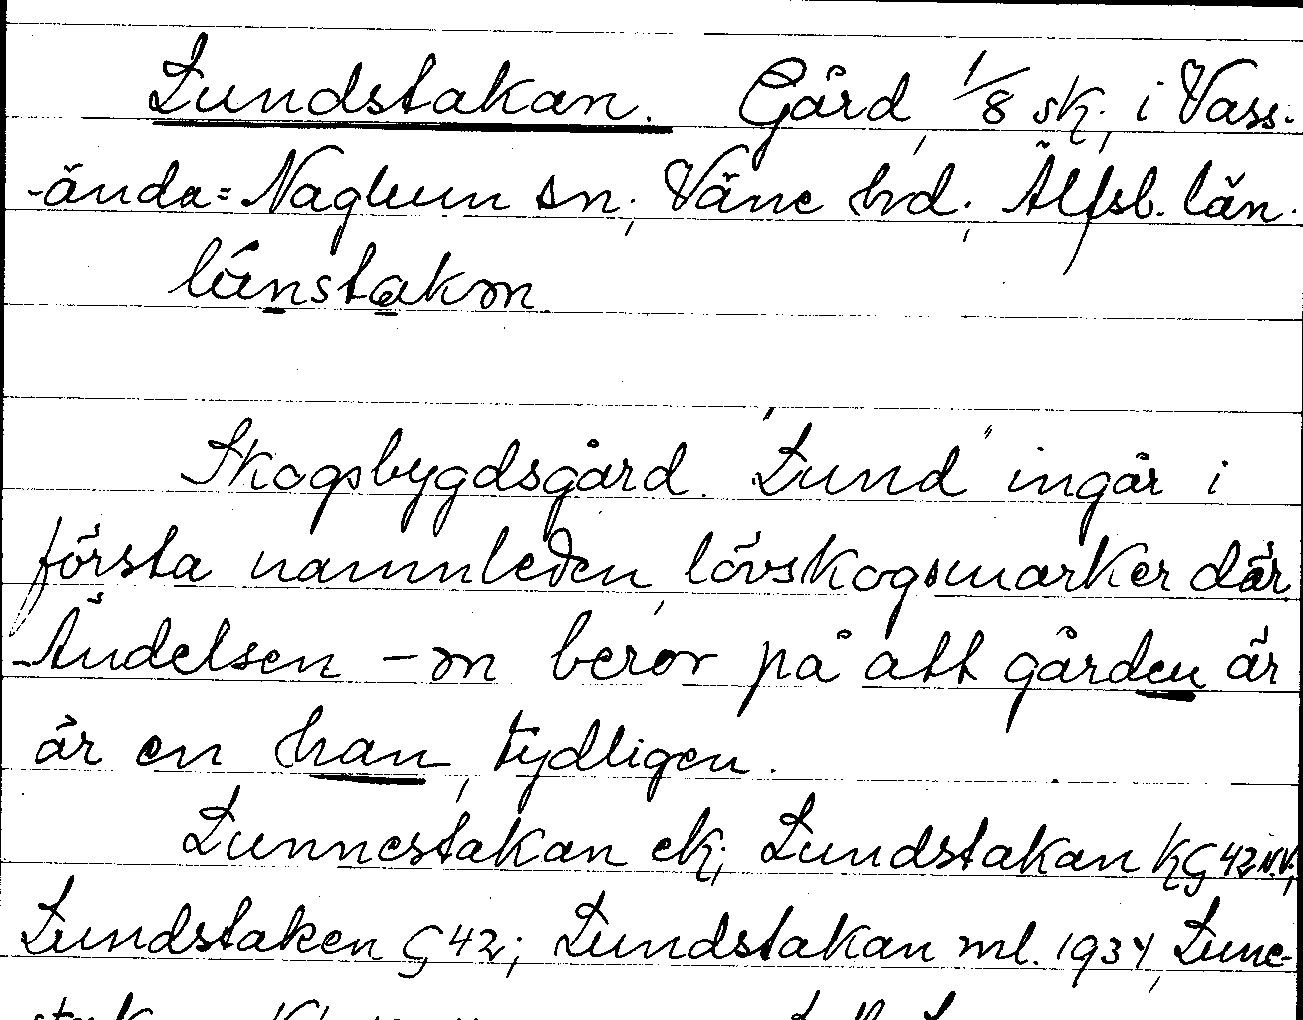 Lundstakan. Gård, 1/8 sk., i Vass-
-ända=Naglum sn., Väne hd., Älfsb. län.
Skogsbygdsgård. "Lund" ingår i
första namnleden, lövskogsmarker där.
Ändelsen -ɷn beror på att gården är
är en han, tydligen.
Lunnestakan ek., Lundstakan KG 42 N.V.,
Lundstaken G 42; Lundstakan ml. 1934, Lune-